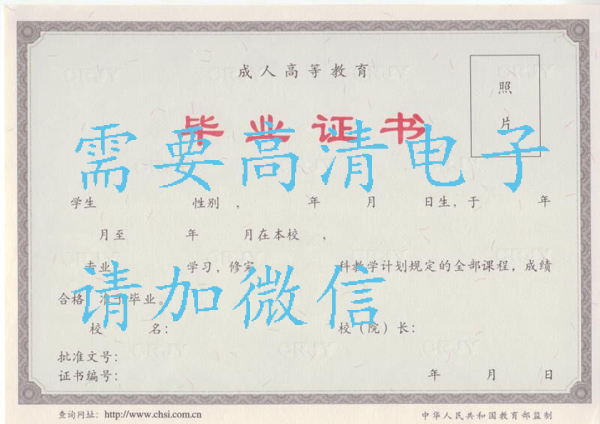 成人高等教育
照
片
毕业证书
需要高清电子
学生 性别 , 年 月 日生,于 年
月至 年 月在本校 ,
专业 学习,修完 科教学计划规定的全部课程,成绩
请加微信
合格,准予毕业。
校 名: 校(院)长:
批准文号:
证书编号: 年 月 日
查询网址:http://www.chsi.com.cn 中华人民共和国教育部监制